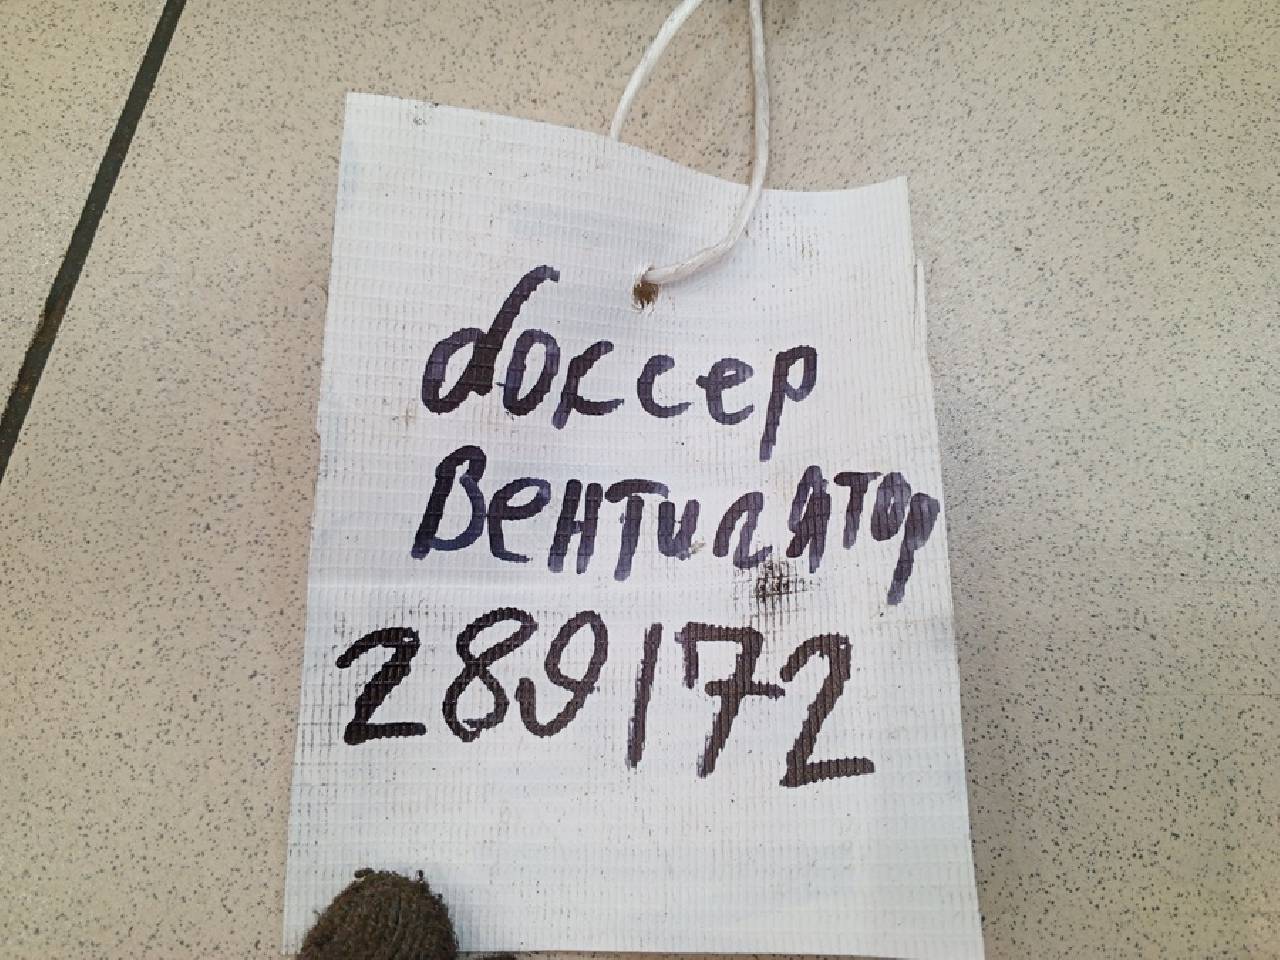 боксер
Вентилятор
289172